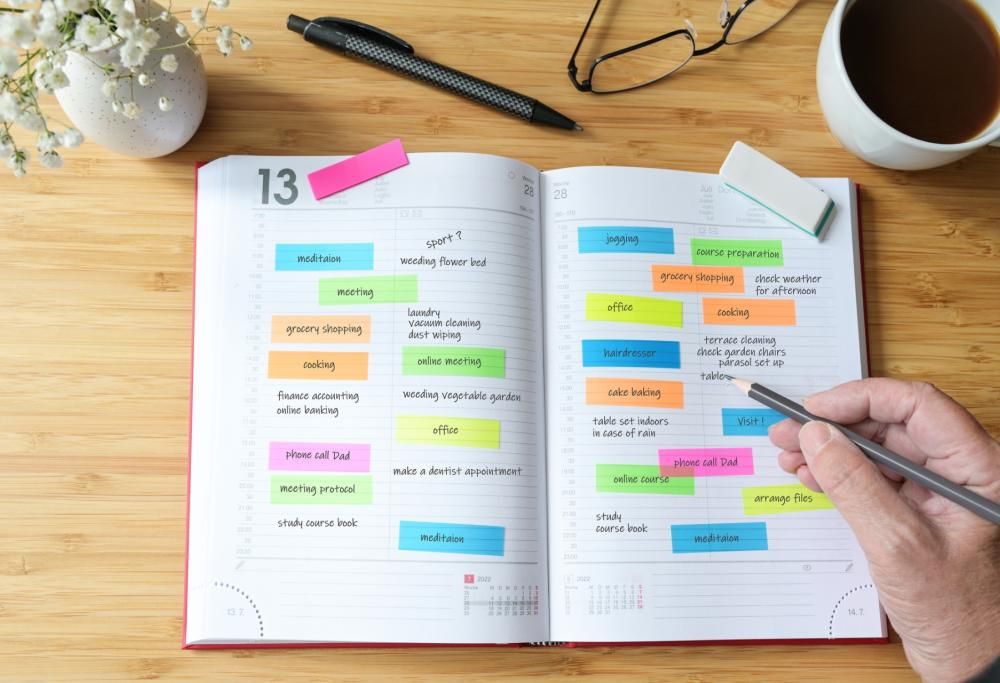 13
Woche
28
7:00
sport ?
meditaion
weeding flower bed
meeting
laundry
vacuum cleaning
dust wiping
grocery shopping
cooking
online meeting
finance accounting
online banking
weeding vegetable garden
office
phone call Dad
make a dentist appointment
meeting protocol
study course book
meditaion
7 2022
13. 7.
Woche
28
Juli
jogging
course preparation
grocery shopping
check weather
for afternoon
office
cooking
terrace cleaning
check garden chairs
parasol set up
table
hairdresser
cake baking
table set indoors
in case of rain
Visit !
phone call Dad
online course
arrange files
study
course book
meditaion
2022
14. 7.